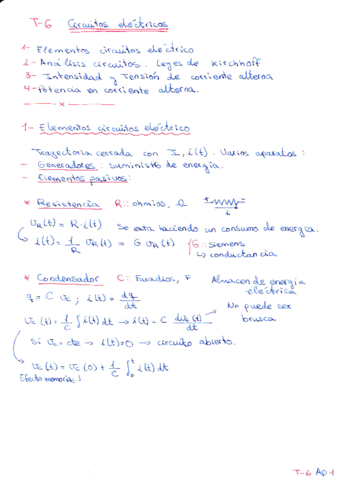 T-6 Circuitos eléctricos
1- Elementos circuitos eléctrico
2- Análisis circuitos. Leyes de Kirchhoff
3- Intensidad y Tensión de corriente alterna
4- Potencia en corriente alterna.
1- Elementos circuitos eléctrico
Trayectoria cerrada con I, i(t). Varios aparatos:
- Generadores: suministro de energía.
- Elementos pasivos:
* Resistencia R:: ohmios, Ω
i
U_R(t) = R·i(t) Se esta haciendo un consumo de energía.
i(t) = 1/R U_R(t) = G U_R(t) G:: siemens
↳ conductancia
* Condensador C:: Faradios, F Almacen de energía eléctrica
q = C U_c ; i(t) = dq/dt
No puede ser brusca
U_c(t) = 1/C ∫ i(t) dt → i(t) = C dU_c(t)/dt
Si U_c = cte → i(t)=0 → circuito abierto.
U_c(t) = U_c(0) + 1/C ∫₀ᵗ i(t) dt
Efecto memoria!
T-6 Ap 1